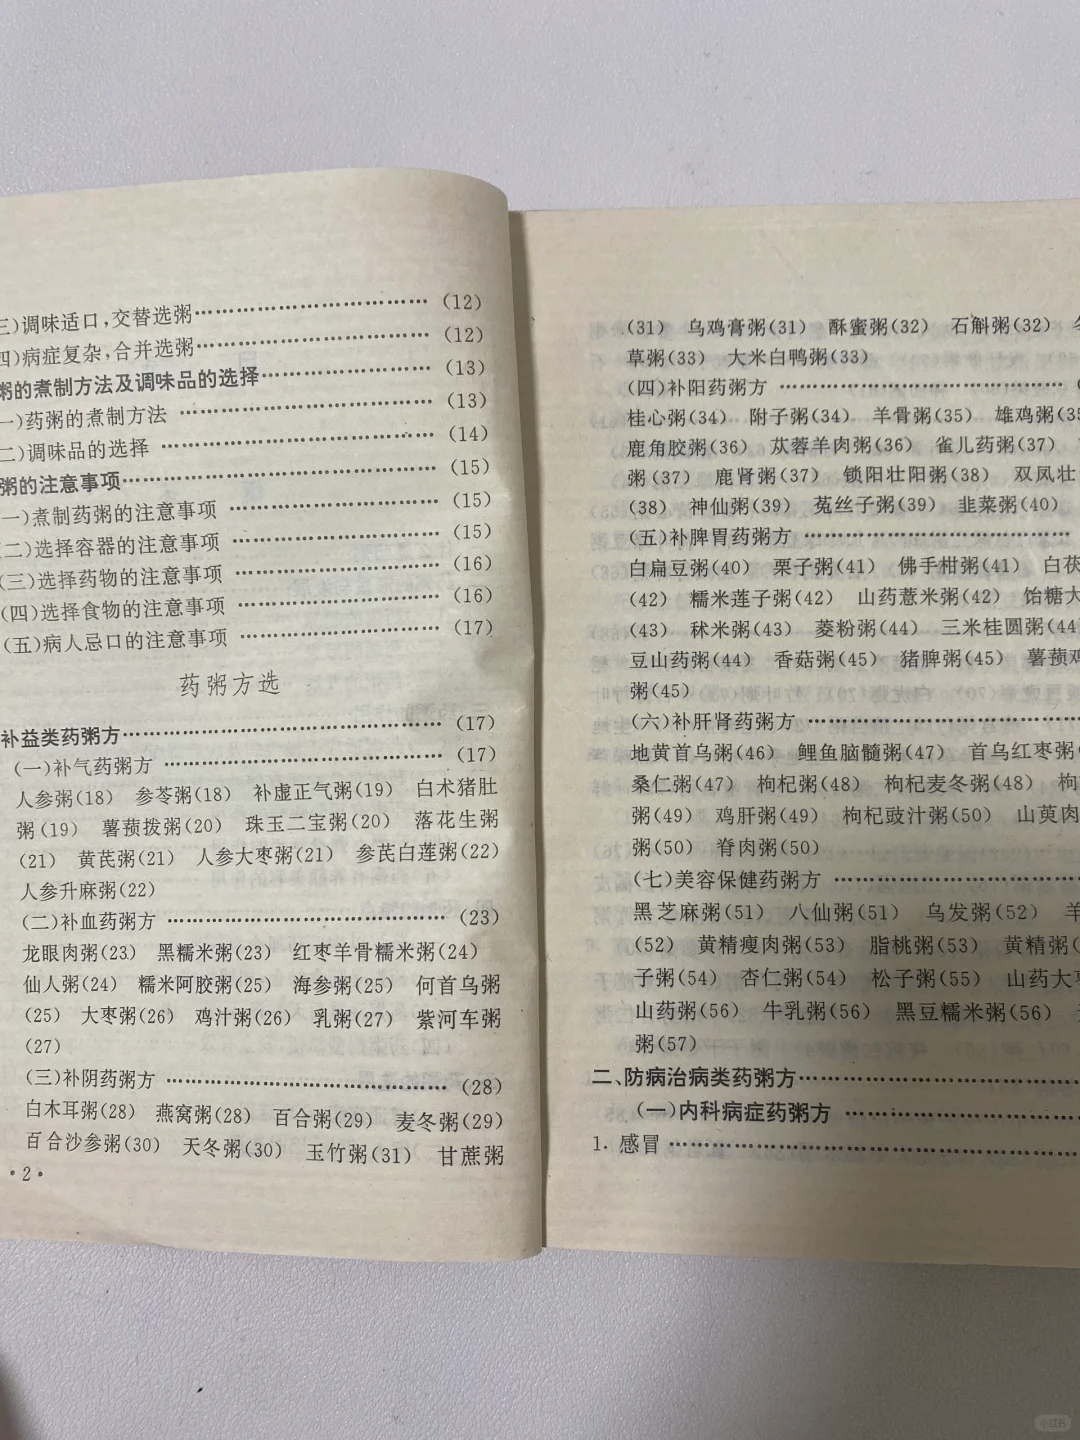 三)调味适口,交替选粥…………………………(12)
四)病症复杂,合并选粥…………………………(12)
粥的煮制方法及调味品的选择…………………(13)
一)药粥的煮制方法 …………………………(13)
二)调味品的选择 ……………………………(14)
粥的注意事项……………………………………(15)
一)煮制药粥的注意事项 ……………………(15)
(二)选择容器的注意事项 ……………………(15)
(三)选择药物的注意事项 ……………………(16)
(四)选择食物的注意事项 ……………………(16)
(五)病人忌口的注意事项 ……………………(17)
药粥方选
补益类药粥方……………………………………(17)
(一)补气药粥方 ………………………………(17)
人参粥(18) 参苓粥(18) 补虚正气粥(19) 白术猪肚
粥(19) 薯蓣拨粥(20) 珠玉二宝粥(20) 落花生粥
(21) 黄芪粥(21) 人参大枣粥(21) 参芪白莲粥(22)
人参升麻粥(22)
(二)补血药粥方 ………………………………(23)
龙眼肉粥(23) 黑糯米粥(23) 红枣羊骨糯米粥(24)
仙人粥(24) 糯米阿胶粥(25) 海参粥(25) 何首乌粥
(25) 大枣粥(26) 鸡汁粥(26) 乳粥(27) 紫河车粥
(27)
(三)补阴药粥方 ………………………………(28)
白木耳粥(28) 燕窝粥(28) 百合粥(29) 麦冬粥(29)
百合沙参粥(30) 天冬粥(30) 玉竹粥(31) 甘蔗粥
·2·
(31) 乌鸡膏粥(31) 酥蜜粥(32) 石斛粥(32)
草粥(33) 大米白鸭粥(33)
(四)补阳药粥方 ………………………………
桂心粥(34) 附子粥(34) 羊骨粥(35) 雄鸡粥(35
鹿角胶粥(36) 苁蓉羊肉粥(36) 雀儿药粥(37)
粥(37) 鹿肾粥(37) 锁阳壮阳粥(38) 双凤壮
(38) 神仙粥(39) 菟丝子粥(39) 韭菜粥(40)
(五)补脾胃药粥方 ……………………………
白扁豆粥(40) 栗子粥(41) 佛手柑粥(41) 白茯
(42) 糯米莲子粥(42) 山药薏米粥(42) 饴糖大
(43) 秫米粥(43) 菱粉粥(44) 三米桂圆粥(44
豆山药粥(44) 香菇粥(45) 猪脾粥(45) 薯蓣鸡
粥(45)
(六)补肝肾药粥方 ……………………………
地黄首乌粥(46) 鲤鱼脑髓粥(47) 首乌红枣粥
桑仁粥(47) 枸杞粥(48) 枸杞麦冬粥(48) 枸
粥(49) 鸡肝粥(49) 枸杞豉汁粥(50) 山萸肉
粥(50) 脊肉粥(50)
(七)美容保健药粥方 …………………………
黑芝麻粥(51) 八仙粥(51) 乌发粥(52) 羊
(52) 黄精瘦肉粥(53) 脂桃粥(53) 黄精粥(
子粥(54) 杏仁粥(54) 松子粥(55) 山药大枣
山药粥(56) 牛乳粥(56) 黑豆糯米粥(56)
粥(57)
二、防病治病类药粥方……………………………
(一)内科病症药粥方 …………………………
1. 感冒 …………………………………………
小红书